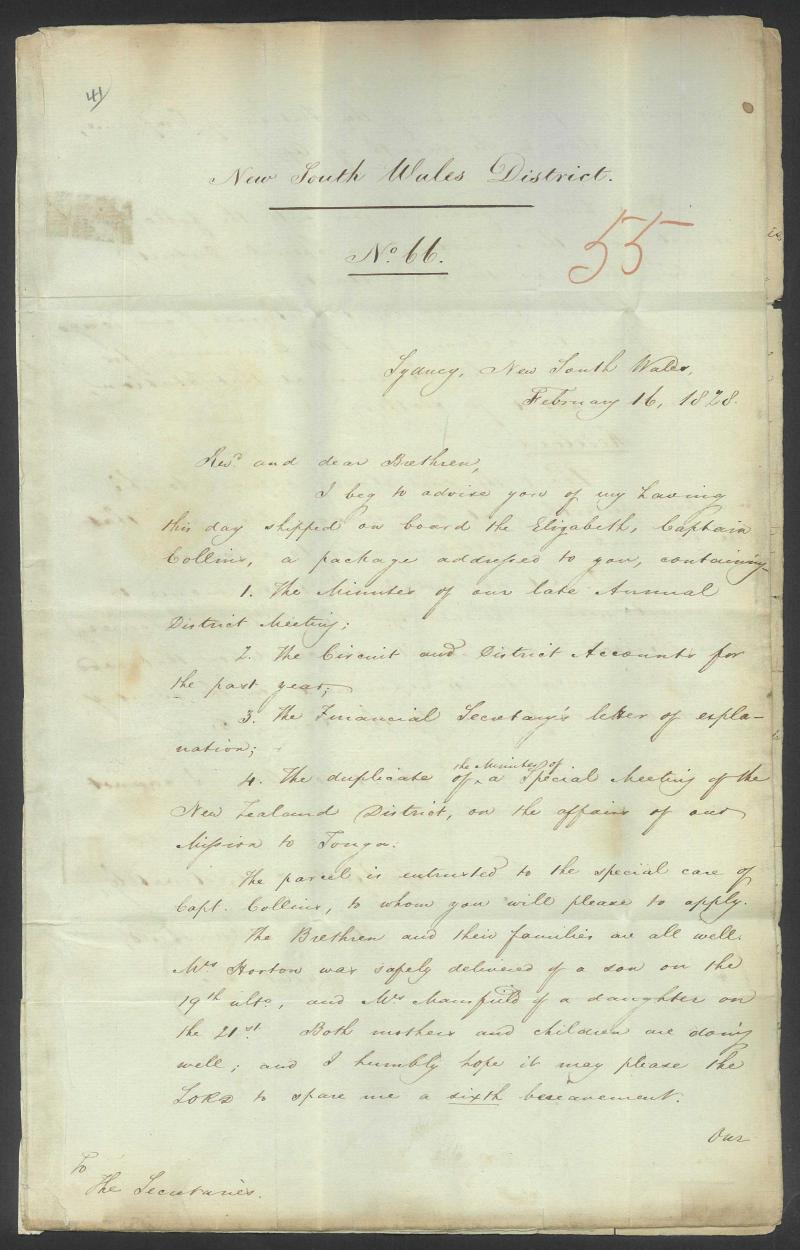 41
New South Wales District.
No. 66.
55
Sydney, New South Wales,
February 16, 1828.
Revd. and dear Brethren,
I beg to advise you of my having
this day shipped on board the Elizabeth, Captain
Collins, a package addressed to you, containing
1. The Minutes of our late Annual
District Meeting;
2. The Circuit and District Accounts for
the past year;
3. The Financial Secretary's letter of expla-
nation;
the Minutes of
4. The duplicate of ^ a Special Meeting of the
New Zealand District, on the affairs of our
Mission to Tonga.
The parcel is entrusted to the special care of
Capt. Collins, to whom you will please to apply.
The Brethren and their families are all well.
Mrs Horton was safely delivered of a son on the
19th ulto., and Mrs Mansfield of a daughter on
the 21st. Both mothers and children are doing
well; and I humbly hope it may please the
LORD to spare me a sixth bereavement.
Our
To
The Secretaries.